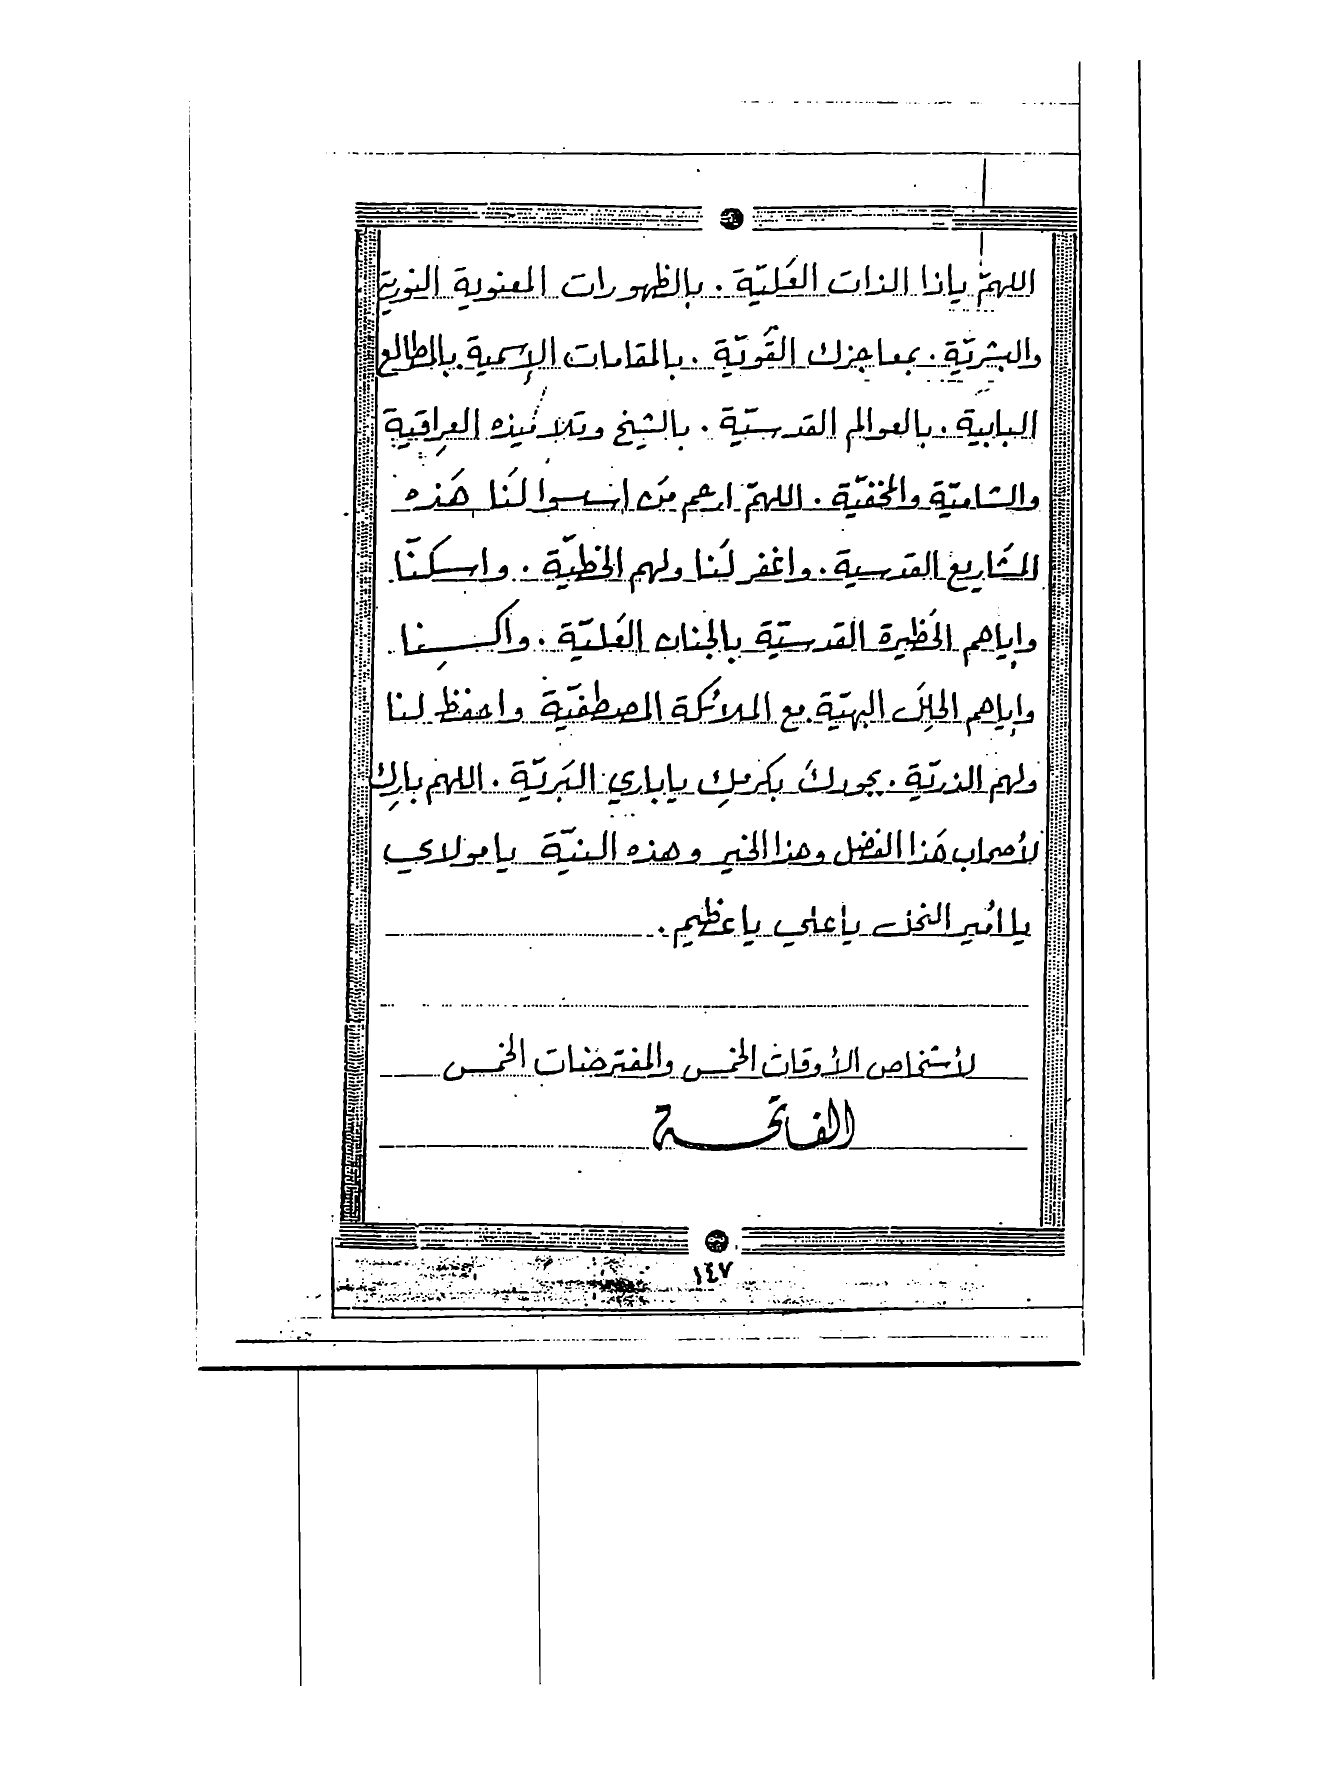 اللهمّ ياذا الذات العَليّة . بالظهورات المعنوية النورية
والبشريّة . بمعاجزك القُويّة . بالمقامات الإسمية . بالمطالع
البابية . بالعوالم القدسيّة . بالشيخ وتلاميذه العراقية
والشاميّة والخفيّة . اللهمّ ارحم مَن اسسوا لنَا هَذه
المشَاريع القدسية . واغفر لنَا ولهم الخطيّة . واسكنّا
وإياهم الحَظيرة القدسيّة بالجنان العَليّة . واكسِنا
وإياهم الحلِلَ البهيّة مع الملائكة المصطفيّة واحفظ لنا
ولهم الذريّة . بجودكَ بكرمِك ياباري البَريّة . اللهم بارِك
لأصحاب هَذا الفضل وهذا الخير وهذه البنيّة يا مولاي
يا امُير النحل يا علي يا عظيم .
لأشخاص الأوقات الخمس والمفترضات الخمس
الفاتحة
١٤٧